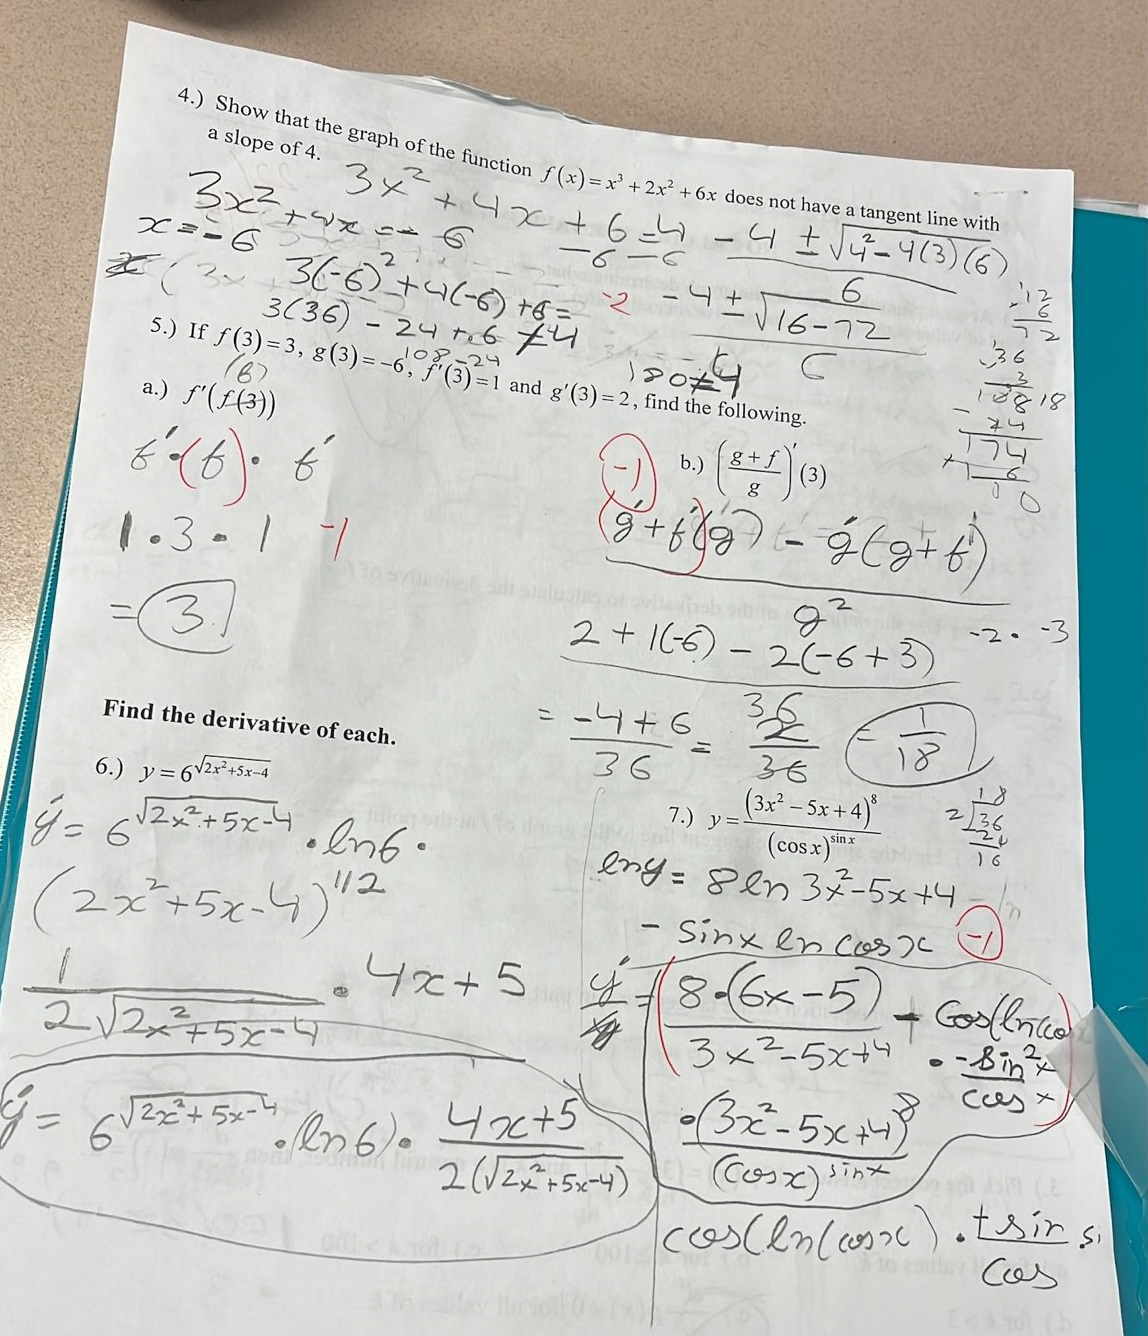 4.) Show that the graph of the function f(x)=x³+2x²+6x does not have a tangent line with
a slope of 4.
3x² + 4x + 6 = 4
-6 -6
3x² + 4x = - 6
x = - 6
3(-6)² + 4(-6) + 6 =
3(36) - 24 + 6 ≠ 4
108 - 24
-2
-4 ± √4² - 4(3)(6)
6
-4 ± √16-72
6
180≠4
12
6
72
36
3
108 18
- 24
174
+ 6
5.) If f(3)=3, g(3)=-6, f'(3)=1 and g'(3)=2, find the following.
a.) f'(f(3))
f'·(f)· f'
1·3·1 -1
= 3
-1
b.) ((g+f)/g)'(3)
(g'+f')(g) - g'(g+f)
g²
2 + 1(-6) - 2(-6+3)
36
-2 · -3
= -4+6/36 = 2/36 = 1/18
Find the derivative of each.
6.) y=6^√(2x²+5x-4)
y' = 6^√(2x²+5x-4) · ln6 ·
(2x²+5x-4)^1/2
1/(2√(2x²+5x-4)) · 4x+5
y' = 6^√(2x²+5x-4) · (ln6) · (4x+5)/(2(√2x²+5x-4))
7.) y=(3x²-5x+4)⁸/(cos x)^sin x
18
2)36
16
lny = 8 ln 3x²-5x+4
- sinx ln cosx -1
y' = (8·(6x-5))/(3x²-5x+4)
· -sin²x/cos x
·(3x²-5x+4)⁸/(cosx)^sinx
cos(ln(cosx) · +sin
cos